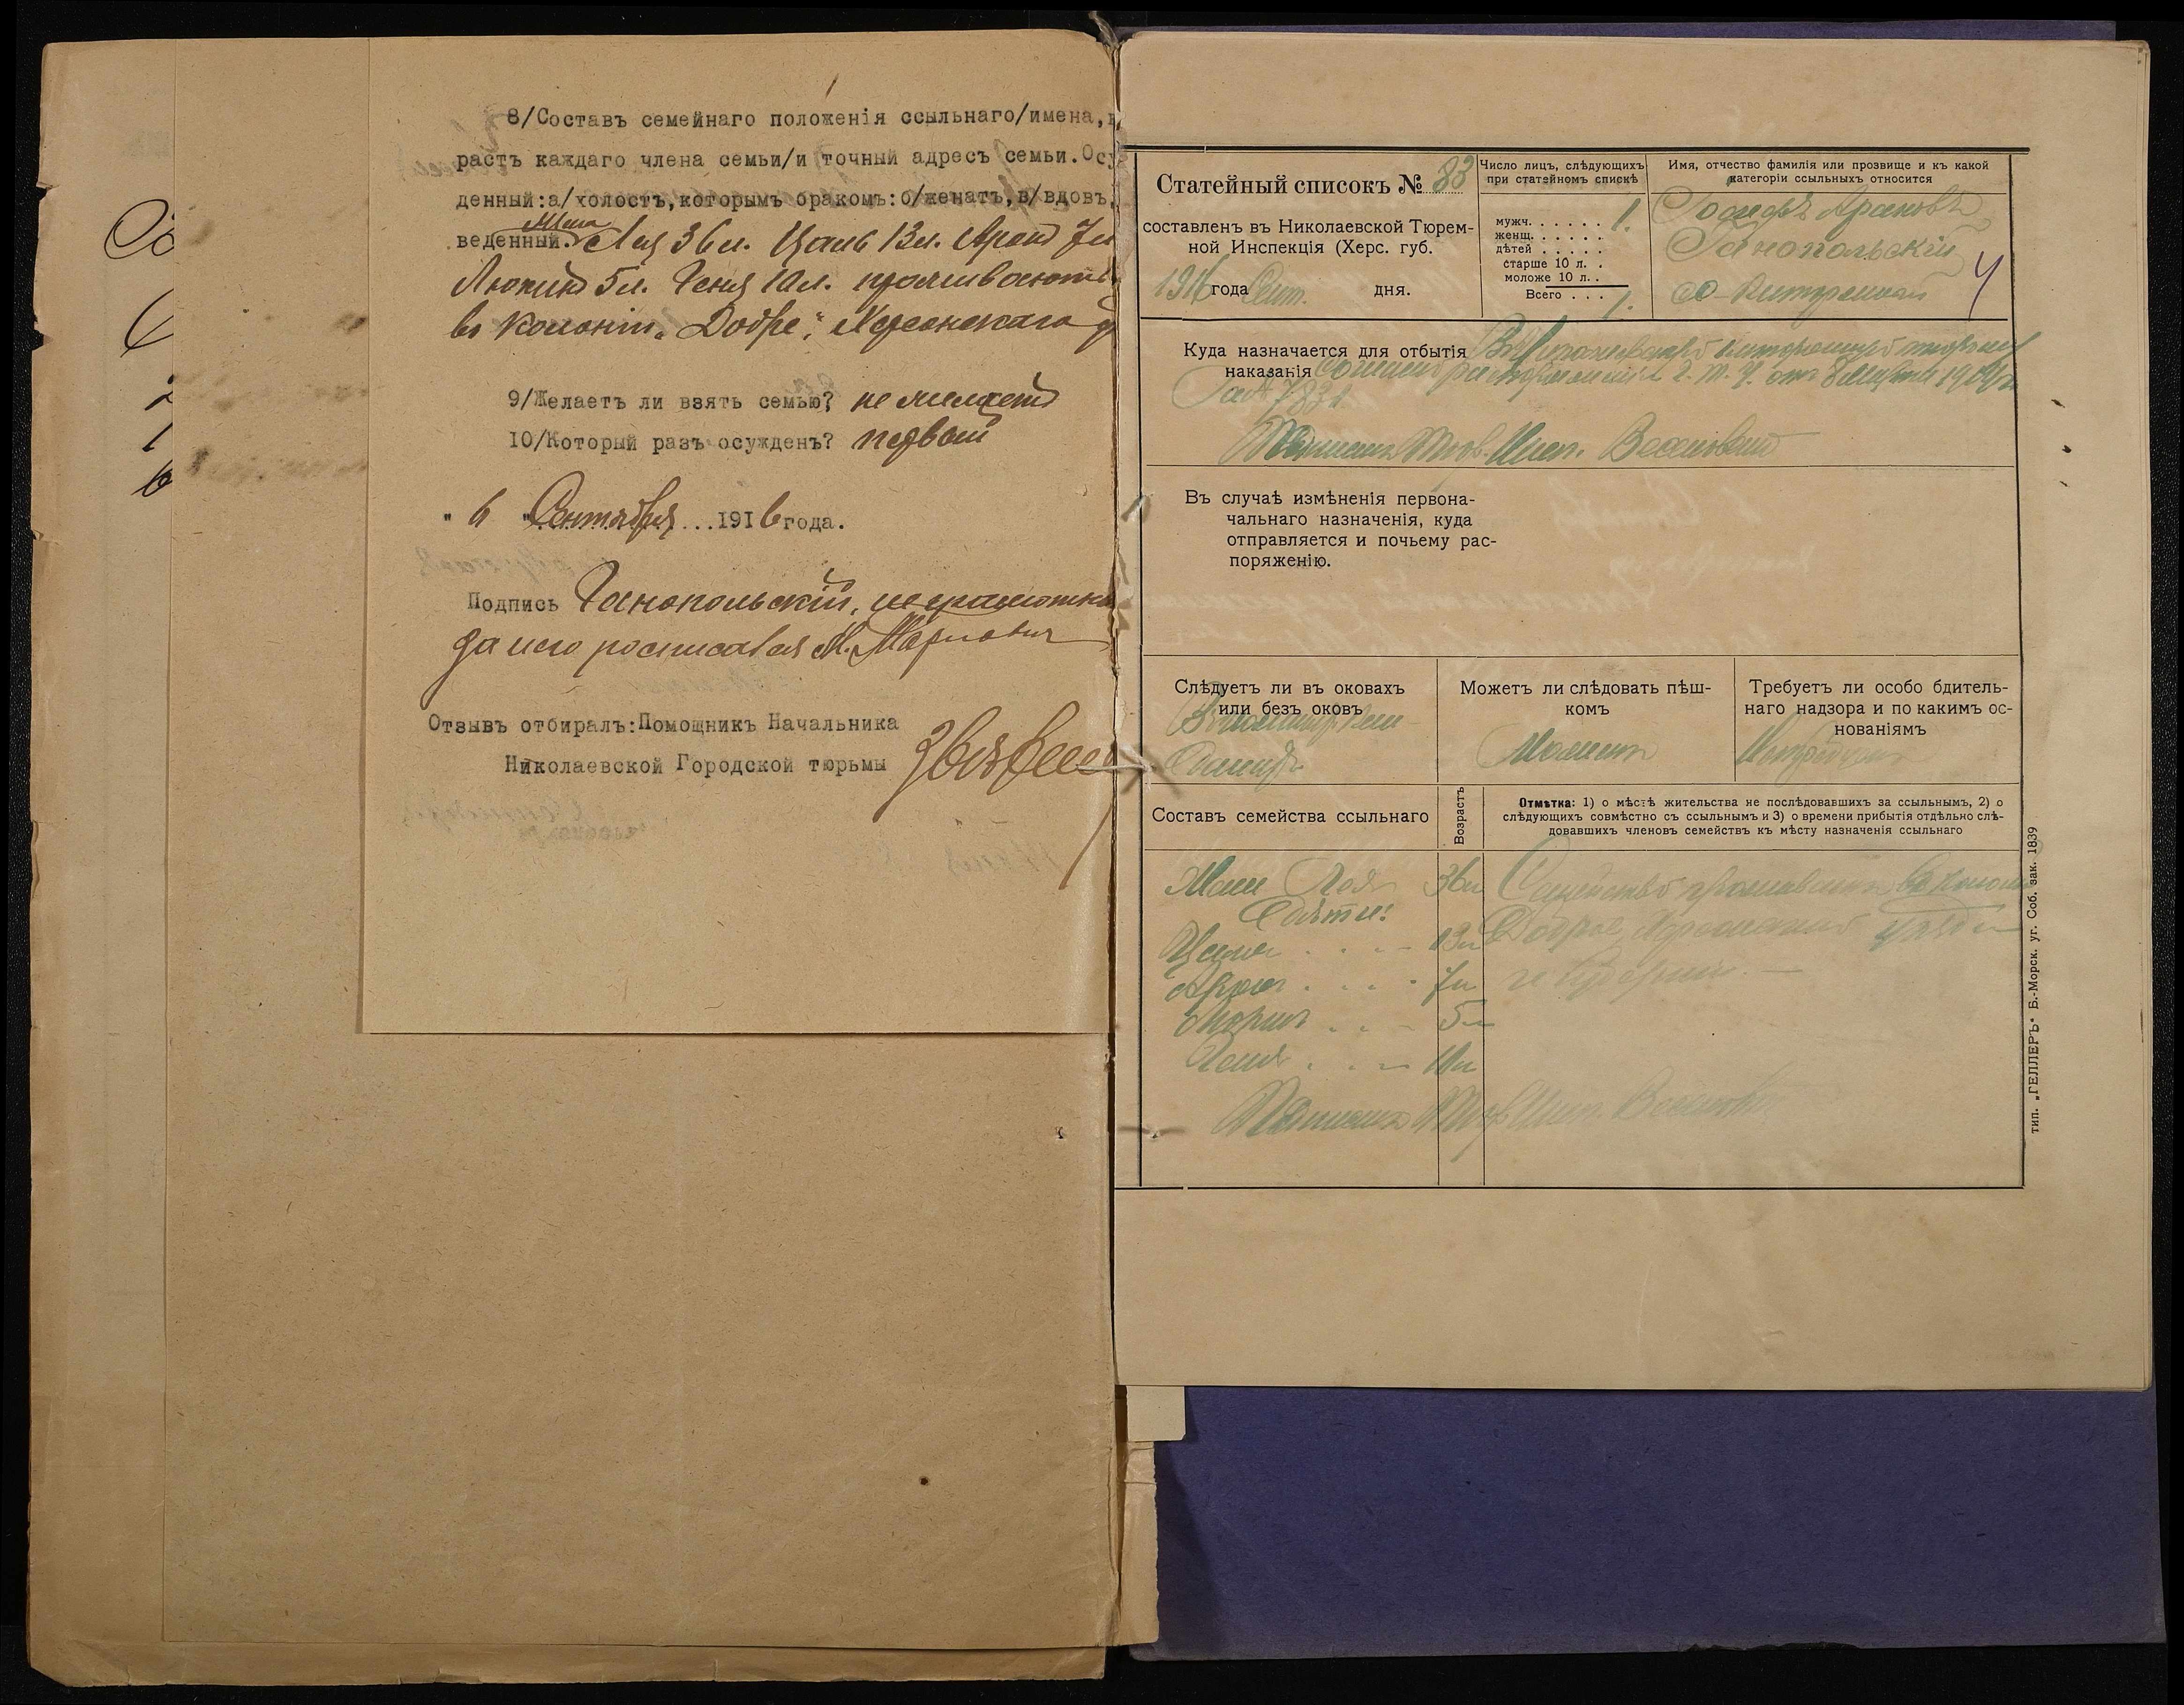 8/Составъ семейнаго положенія ссыльнаго/имена,в
растъ каждаго члена семьи/и точный адресъ семьи.Осу
денный:а/холостъ,которымъ бракомъ:б/женатъ,в/вдовъ,
веденный. Жена Лея 36л. Цаль 13л. Аронъ 7л
5л. Геня 10л. проживаютъ
въ колоніи „Добре", Херсонскаго у
9/Желаетъ ли взять семью? не желаетъ
10/Который разъ осужденъ? первый
" 6 " Сентября...1916 года.
Подпись Ганопольскій, неграмотный
за него росписался М.
Отзывъ отбиралъ:Помощникъ Начальника
Николаевской Городской тюрьмы
Статейный списокъ № 83
составленъ въ Николаевской Тюрем-
ной Инспекція (Херс. губ.
1916 года Сент. дня.
Число лицъ, слѣдующихъ
при статейномъ спискѣ
мужч. . . . . . 1.
женщ. . . . . .
дѣтей . . . . .
старше 10 л. . .
моложе 10 л. . .
Всего . . . 1.
Имя, отчество фамилія или прозвище и къ какой
категоріи ссыльныхъ относится
Іосифъ Ароновъ
Ганопольскій
с-каторжный
Куда назначается для отбытія
наказанія
каторжную тюрьму
согласно распоряженія Г. Т. У. отъ
за № 7831
Тюр. Инсп.
Въ случаѣ измѣненія первона-
чальнаго назначенія, куда
отправляется и почьему рас-
поряженію.
Слѣдуетъ ли въ оковахъ
или безъ оковъ
Можетъ ли слѣдовать пѣш-
комъ
Можетъ
Требуетъ ли особо бдитель-
наго надзора и по какимъ ос-
нованіямъ
Составъ семейства ссыльнаго
Возрастъ
Отмѣтка: 1) о мѣстѣ жительства не послѣдовавшихъ за ссыльнымъ, 2) о
слѣдующихъ совмѣстно съ ссыльнымъ и 3) о времени прибытія отдѣльно слѣ-
довавшихъ членовъ семействъ къ мѣсту назначенія ссыльнаго
Жена Лея 36л Семейство проживаетъ въ колоніи
Дѣти:
13л Доброе, Херсонскаго уѣзда
Аронъ . . . . 7л и губерніи
5л
Геня . . . 10л
Тюр. Инсп.
тип. „ГЕЛЛЕРЪ" Б.-Морск. уг. Соб. зак. 1839